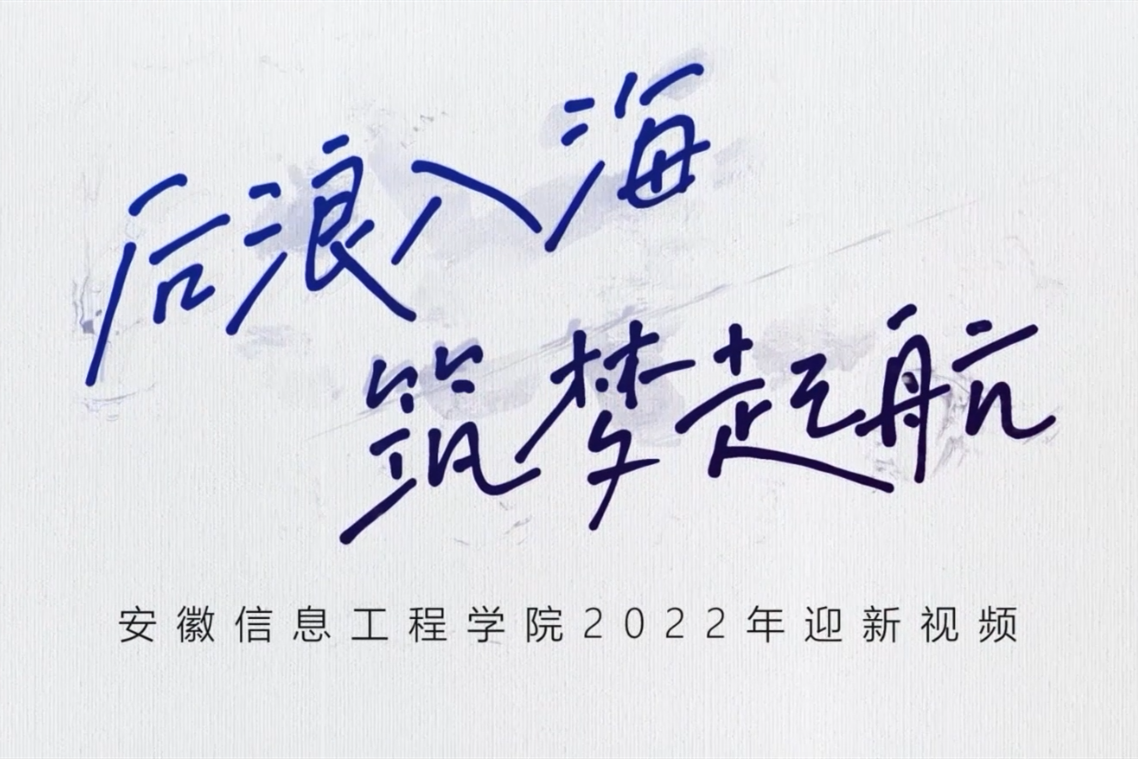 后浪入海
筑梦起航
安徽信息工程学院2022年迎新视频